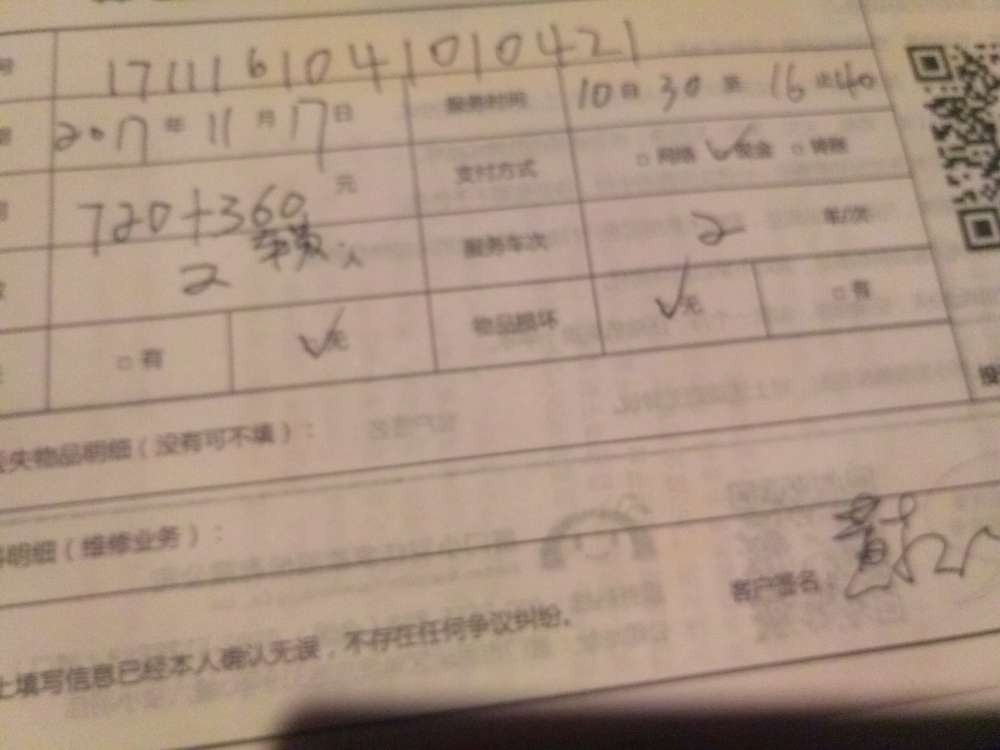 号 171116104101 0421
2017年11月17日 服务时间 10时30至16时40
720+360元 支付方式 □网络 ✓现金 □转账
车费
2人 服务车次 2 车/次
□有 ✓无 物品损坏 ✓无 □有
失物品明细（没有可不填）：
明细（维修业务）：
客户签名：
上填写信息已经本人确认无误，不存在任何争议纠纷。